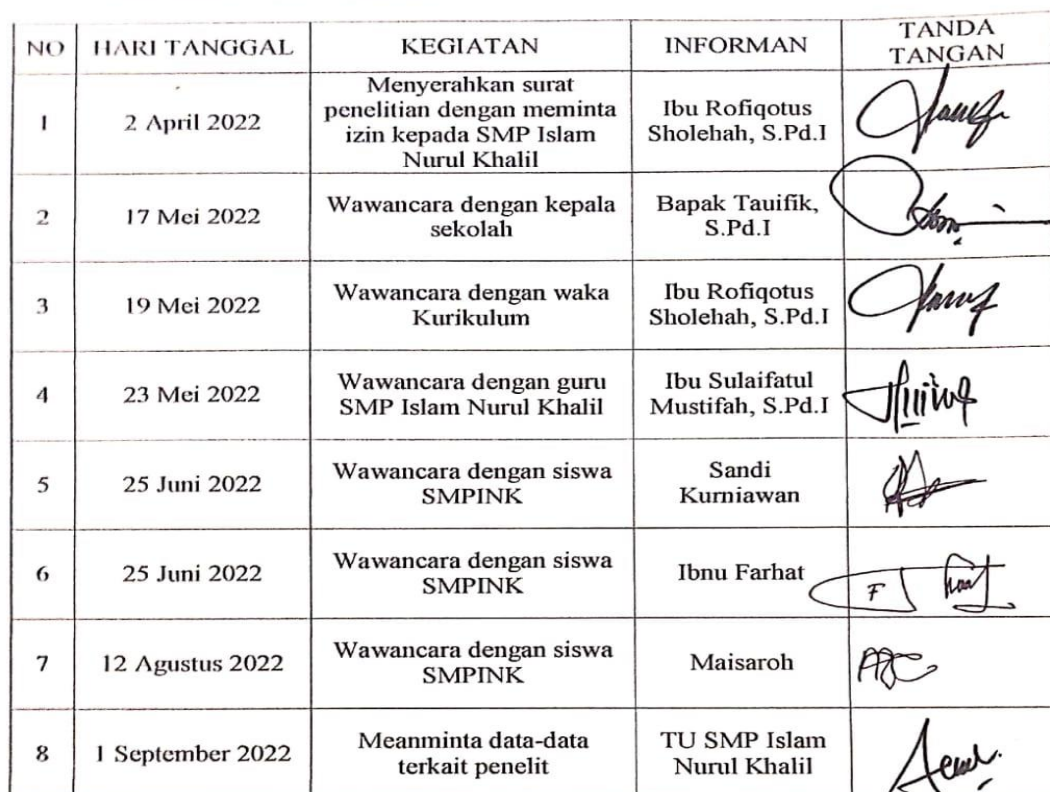 NO HARI TANGGAL KEGIATAN INFORMAN TANDA TANGAN
1 2 April 2022 Menyerahkan surat penelitian dengan meminta izin kepada SMP Islam Nurul Khalil Ibu Rofiqotus Sholehah, S.Pd.I
2 17 Mei 2022 Wawancara dengan kepala sekolah Bapak Tauifik, S.Pd.I
3 19 Mei 2022 Wawancara dengan waka Kurikulum Ibu Rofiqotus Sholehah, S.Pd.I
4 23 Mei 2022 Wawancara dengan guru SMP Islam Nurul Khalil Ibu Sulaifatul Mustifah, S.Pd.I
5 25 Juni 2022 Wawancara dengan siswa SMPINK Sandi Kurniawan
6 25 Juni 2022 Wawancara dengan siswa SMPINK Ibnu Farhat
7 12 Agustus 2022 Wawancara dengan siswa SMPINK Maisaroh
8 1 September 2022 Meanminta data-data terkait penelit TU SMP Islam Nurul Khalil